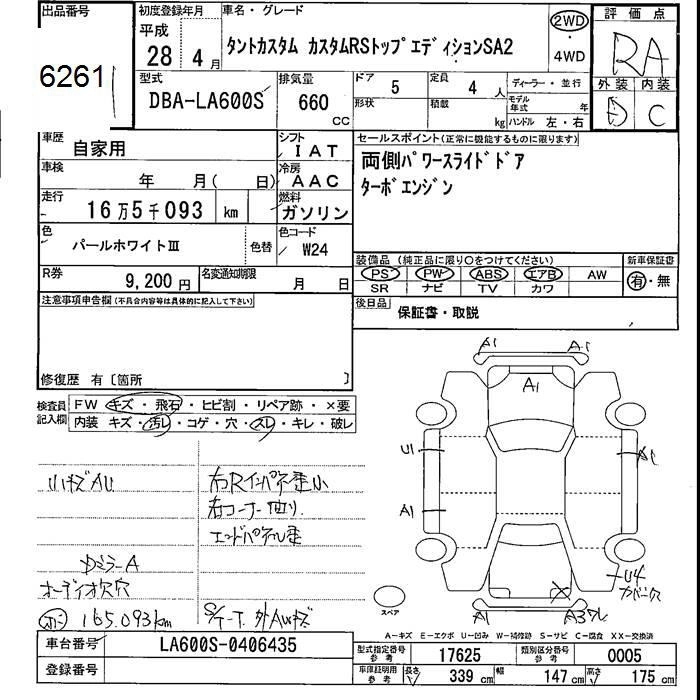 出品番号
6261
初度登録年月
平成
28 4月
車名・グレード
タントカスタム カスタムRSトップエディションSA2
2WD
4WD
評価点
RA
外装 内装
D C
型式
DBA-LA600S
排気量
660
CC
ドア
5
形状
定員
4人
積載
kg
ディーラー・並行
モデル年式 年
ハンドル 左・右
車歴
自家用
シフト
IAT
車検
年 月( 日)
冷房
AAC
走行
16万5千093 km
燃料
ガソリン
色
パールホワイトⅢ
色替
色コード
W24
R券
9,200円
名変通知期限
月 日
セールスポイント(正常に機能するものに限ります)
両側パワースライドドア
ターボエンジン
装備品(純正品に限り○をつけてください)
PS PW ABS エアB AW
SR ナビ TV カワ
新車保証書
有・無
後日品
保証書・取説
注意事項申告欄(不具合内容等は具体的に記入して下さい)
修復歴 有〔箇所 〕
検査員
記入欄
FW キズ・飛石・ヒビ割・リペア跡・×要
内装 キズ・汚レ・コゲ・穴・スレ・キレ・破レ
小キズAU
右Rインパネ歪小
右コーナー凹り
エンドパネル歪
ミラーA
オーディオ欠穴
165.093km
外AWキズ
A1 A1
A1
U1
A1
A1
A1
U4
スペア
A-キズ E-エクボ U-凹み W-補修跡 S-サビ C-腐食 XX-交換済
車台番号
LA600S-0406435
登録番号
型式指定番号
参考
17625
類別区分番号
参考
0005
車庫証明用
参考
長さ
339 cm
幅
147 cm
高さ
175 cm